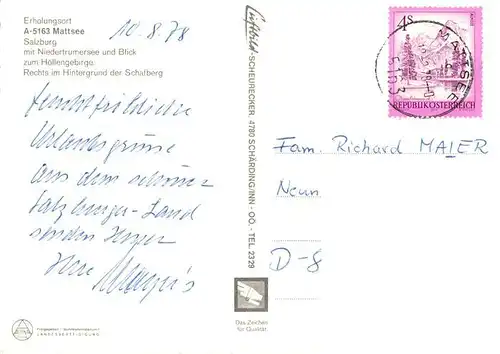 Erholungsort
A-5163 Mattsee
Salzburg
mit Niedertrumersee und Blick
zum Höllengebirge.
Rechts im Hintergrund der Schafberg
10.8.78
Urlaubsgrüsse
aus dem schönen
Salzburger-Land
senden Ihnen
Ihre Mayer's
Luftbild-SCHEURECKER, 4780 SCHÄRDING/INN - OÖ. - TEL. 2329
4S
REPUBLIK ÖSTERREICH
MATTSEE
5163
Fam. Richard MAIER
Neun
D-8
Das Zeichen
für Qualität.
LANDESBETEILIGUNG